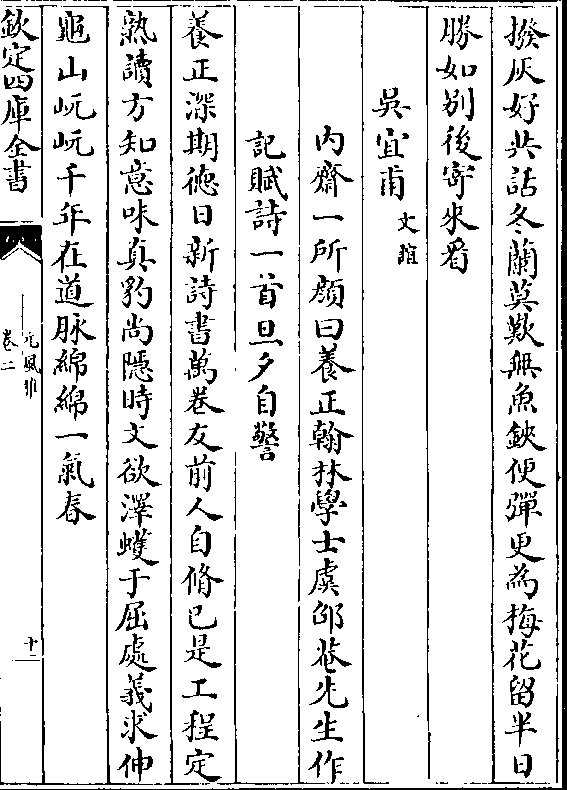 撥灰好共話冬蘭莫歎無魚鋏便彈更為梅花留半日
勝如别後寄來看
吳宜甫文誼
内齋一所顔曰養正翰林學士虞邵菴先生作
記賦詩一首旦夕自警
養正深期徳日新詩書萬卷友前人自脩已是工程定
熟讀方知意味真豹尚隠時文欲澤蠖于屈處義求伸
龜山岏岏千年在道脉綿綿一氣春
欽定四庫全書
元風雅
卷二
十一